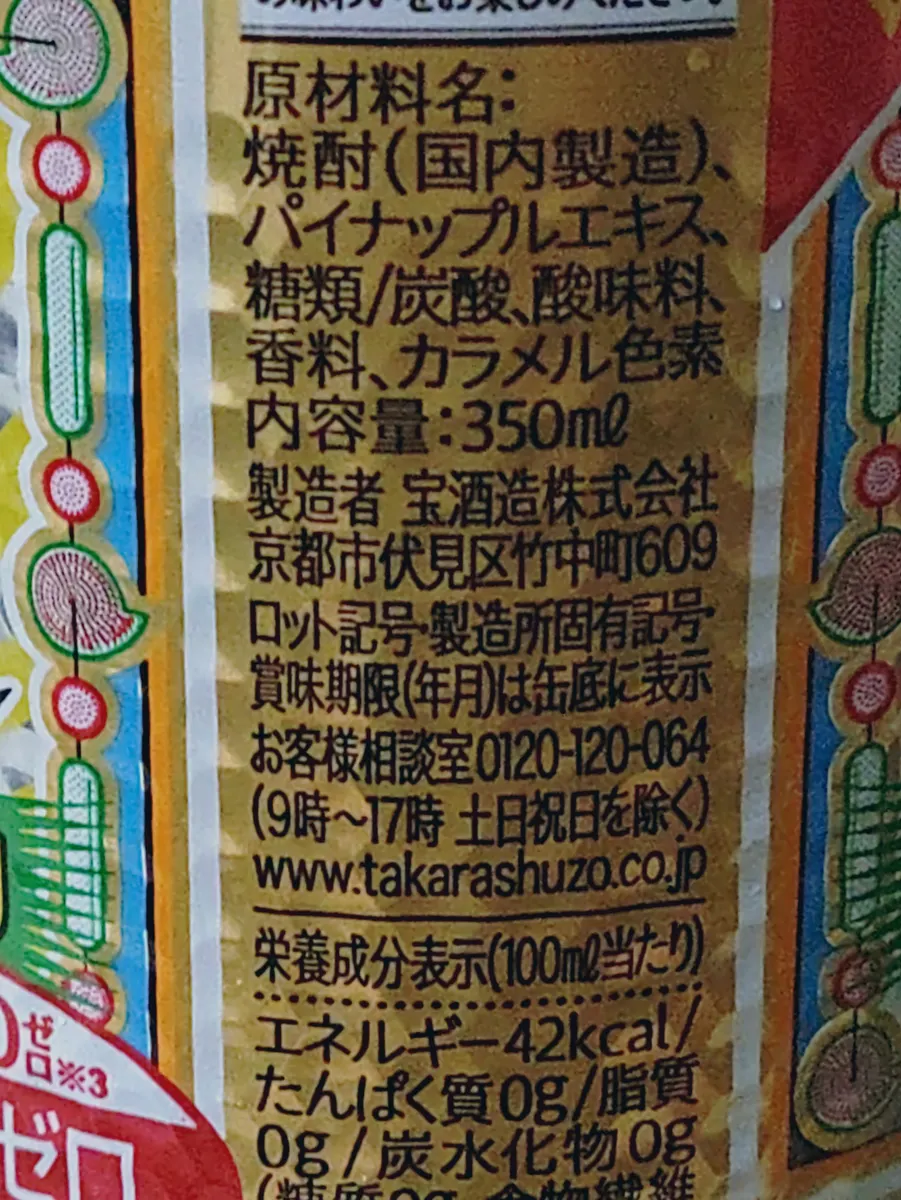 お味わいをお楽しみください。
原材料名:
焼酎(国内製造)、
パイナップルエキス、
糖類/炭酸、酸味料、
香料、カラメル色素
内容量:350mℓ
製造者 宝酒造株式会社
京都市伏見区竹中町609
ロット記号・製造所固有記号・
賞味期限(年月)は缶底に表示
お客様相談室0120-120-064
(9時~17時 土日祝日を除く)
www.takarashuzo.co.jp
栄養成分表示(100mℓ当たり)
エネルギー42kcal/
たんぱく質0g/脂質
0g/炭水化物0g
(糖質0g 食物繊維
0ゼロ※3
ゼロ